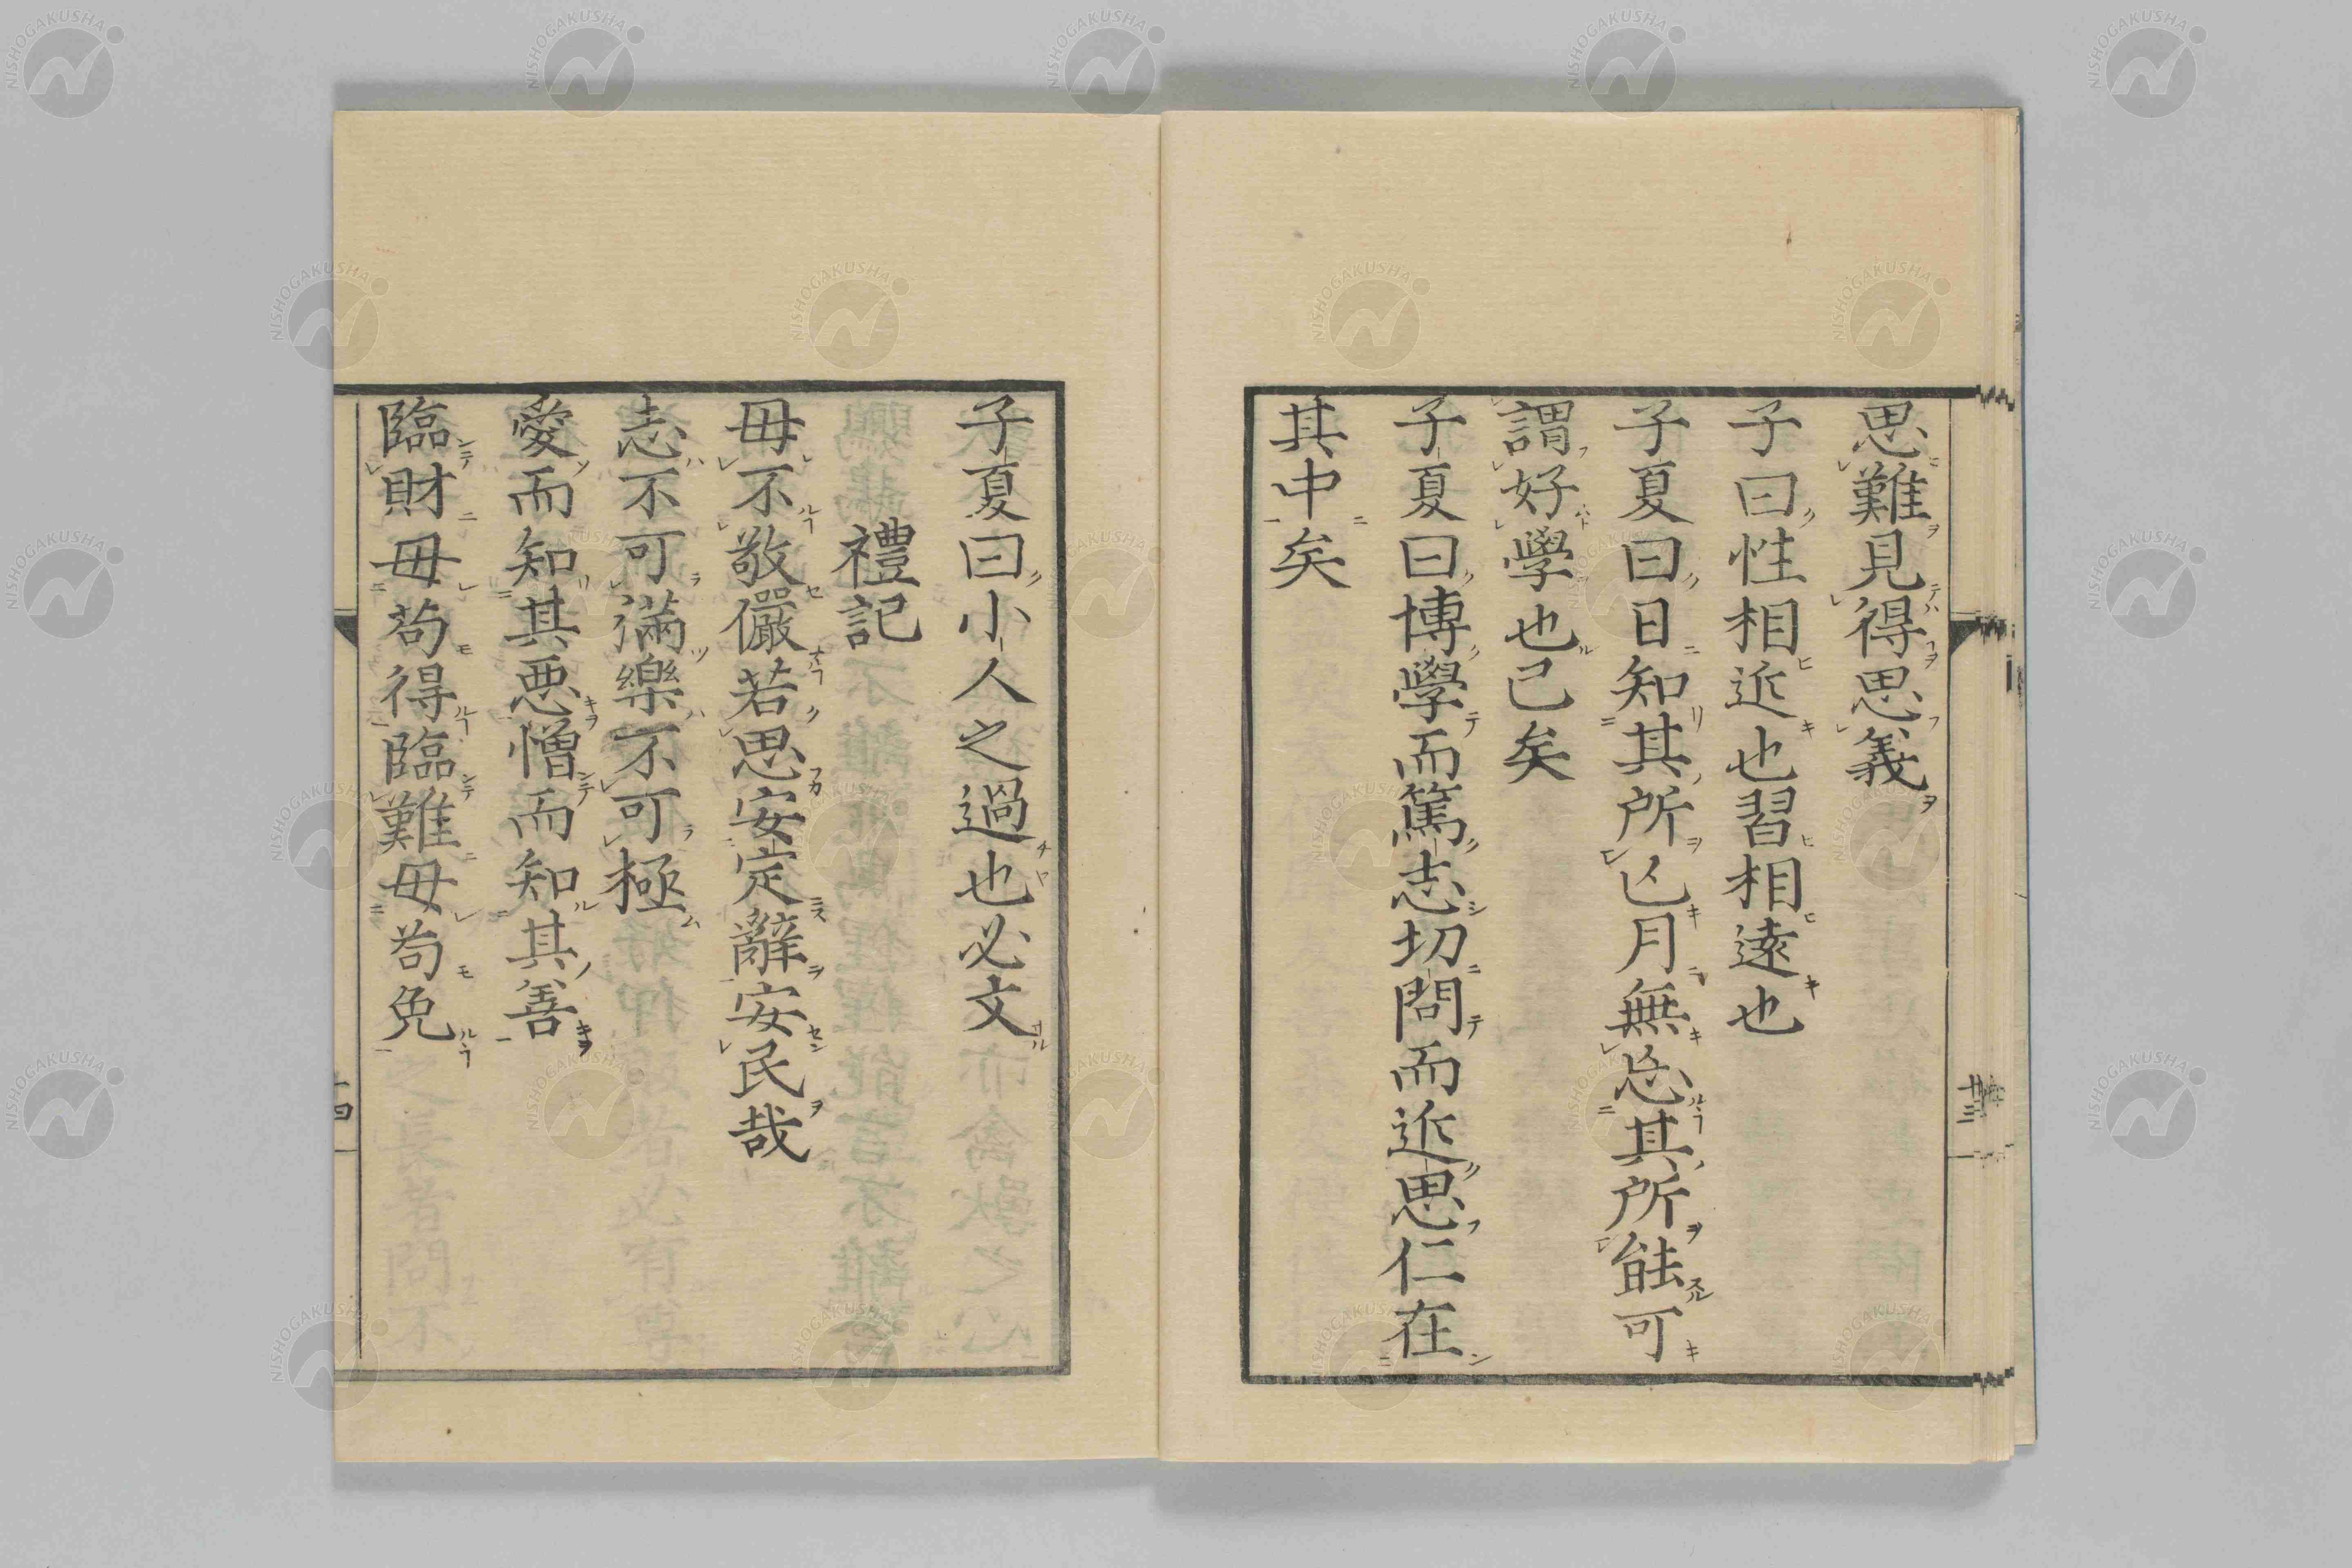 思難見得思義
子曰性相近也習相遠也
子夏曰日知其所亾月無忘其所能可
謂好學也已矣
子夏曰博學而篤志切問而近思仁在
其中矣
子夏曰小人之過也必文
禮記
毋不敬儼若思安定辭安民哉
志不可滿樂不可極
愛而知其惡憎而知其善
臨財毋苟得臨難毋苟免